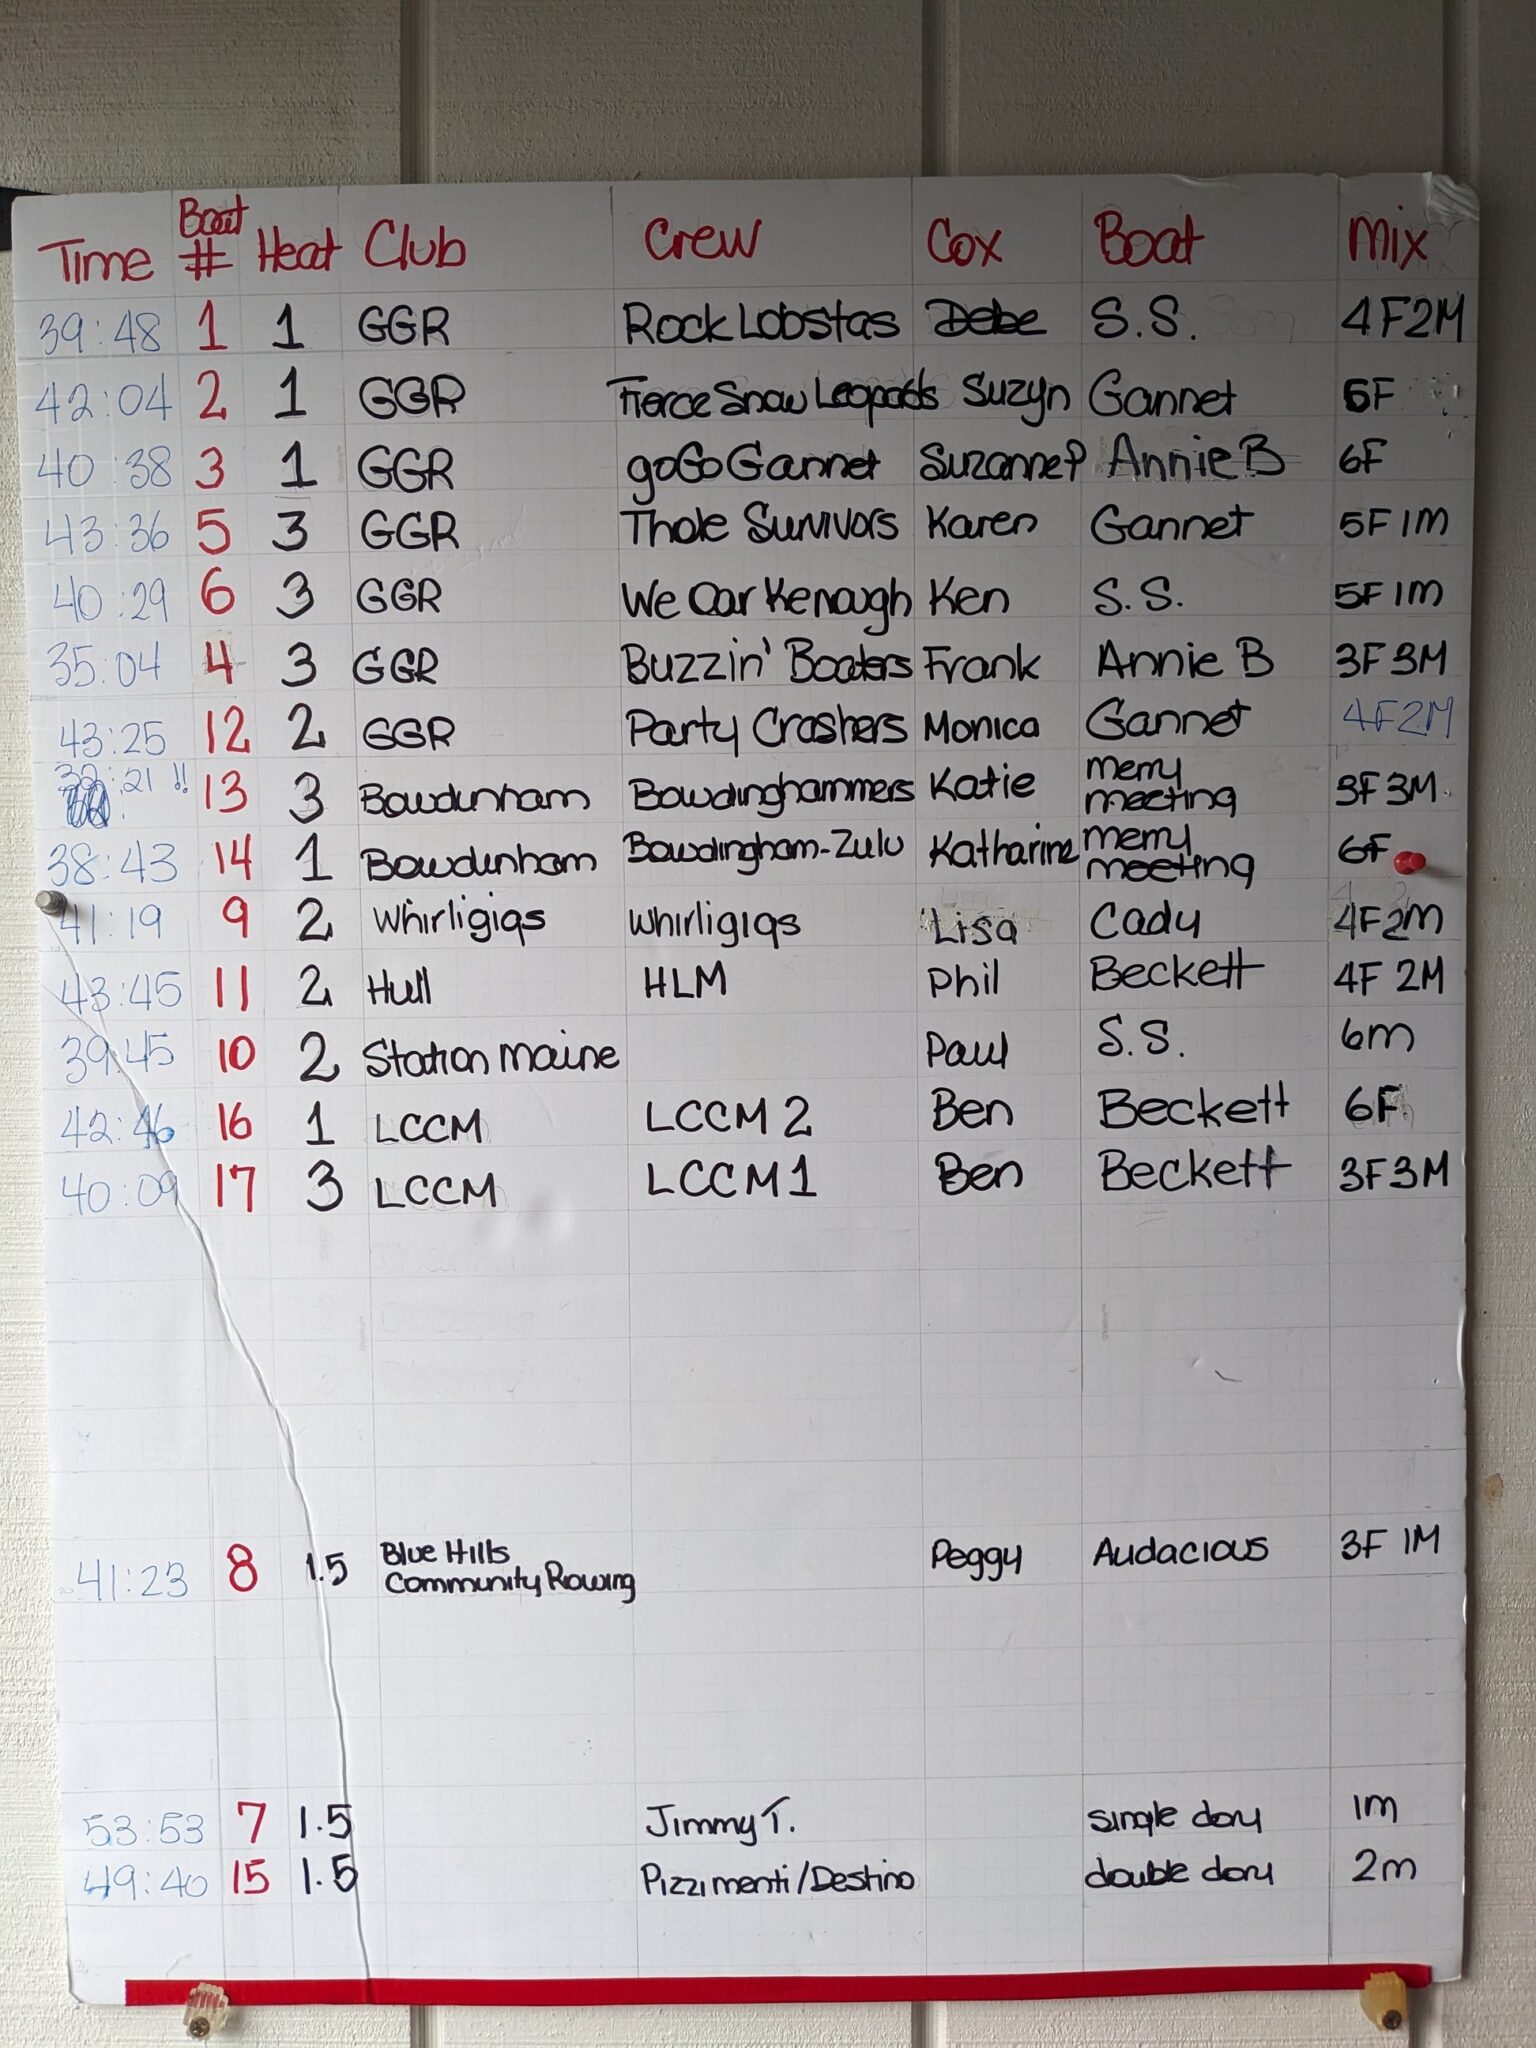 Time Boat # Heat Club Crew Cox Boat Mix
39:48 1 1 GGR Rock Lobstas Debe S.S. 4F2M
42:04 2 1 GGR Fierce Snow Leopards Suzyn Gannet 6F
40:38 3 1 GGR goGo Gannet SuzanneP Annie B 6F
43:36 5 3 GGR Thole Survivors Karen Gannet 5F 1M
40:29 6 3 GGR We Oar Kenough Ken S.S. 5F 1M
35:04 4 3 GGR Buzzin' Boaters Frank Annie B 3F 3M
43:25 12 2 GGR Party Crashers Monica Gannet 4F2M
32:21 !! 13 3 Bowdinham Bowdinghammers Katie merry meeting 3F 3M
38:43 14 1 Bowdinham Bowdingham-Zulu Katharine merry meeting 6F
41:19 9 2 Whirligigs Whirligigs Lisa Cady 4F2M
43:45 11 2 Hull HLM Phil Beckett 4F 2M
39:45 10 2 Station Maine Paul S.S. 6m
42:46 16 1 LCCM LCCM 2 Ben Beckett 6F
40:09 17 3 LCCM LCCM 1 Ben Beckett 3F3M
41:23 8 1.5 Blue Hills Community Rowing Peggy Audacious 3F 1M
53:53 7 1.5 Jimmy T. single dory 1m
49:40 15 1.5 Pizzimenti/Destino double dory 2m